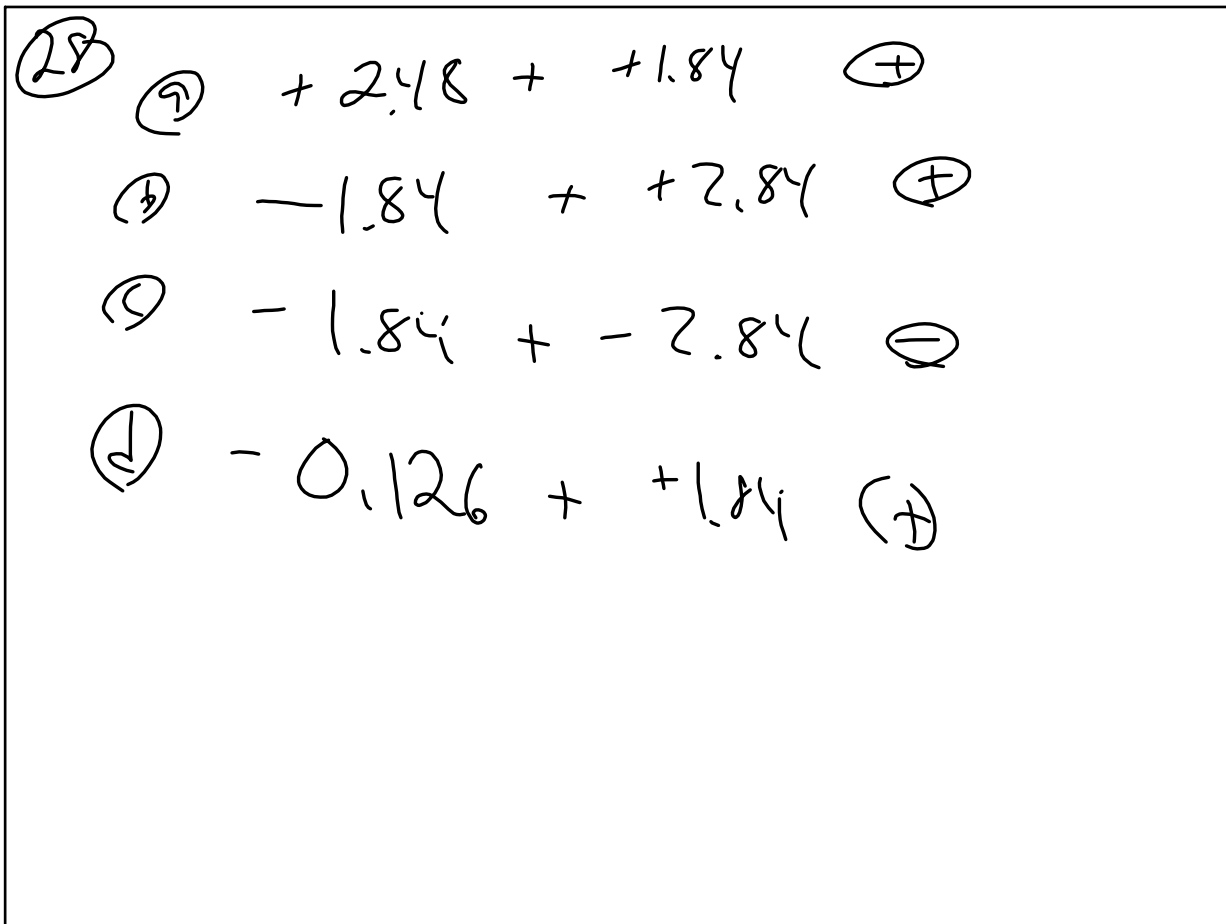 28
a + 2.48 + +1.84 +
b - 1.84 + +2.84 +
c - 1.84 + - 2.84 -
d - 0.126 + +1.84 +